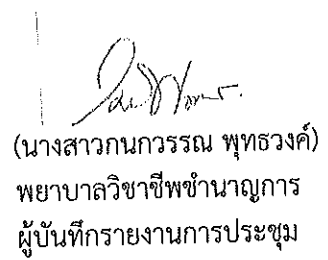 (นางสาวกนกวรรณ พุทธวงค์)
พยาบาลวิชาชีพชำนาญการ
ผู้บันทึกรายงานการประชุม